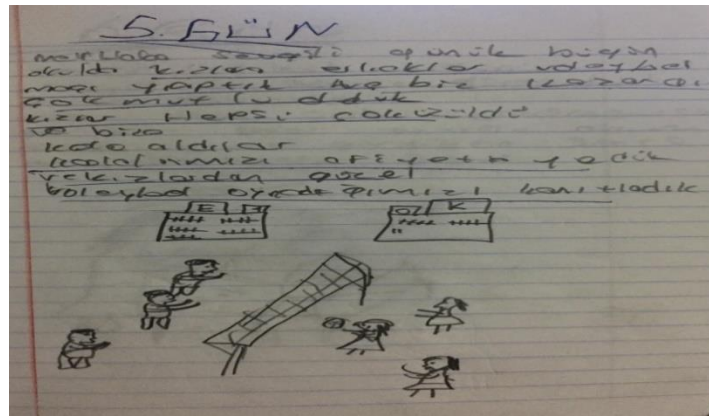 5. GÜN
merhaba sevgili günlük bugün
okulda kızlar erkekler voleybol
maçı yaptık ve biz kazandı
çok mutlu olduk
kızlar Hepsi çok üzüldü
ve bize
kola aldılar
kolalarımızı afiyetle yedik
ve kızlardan güzel
voleybol oynadığımızı kanıtladık
E
K